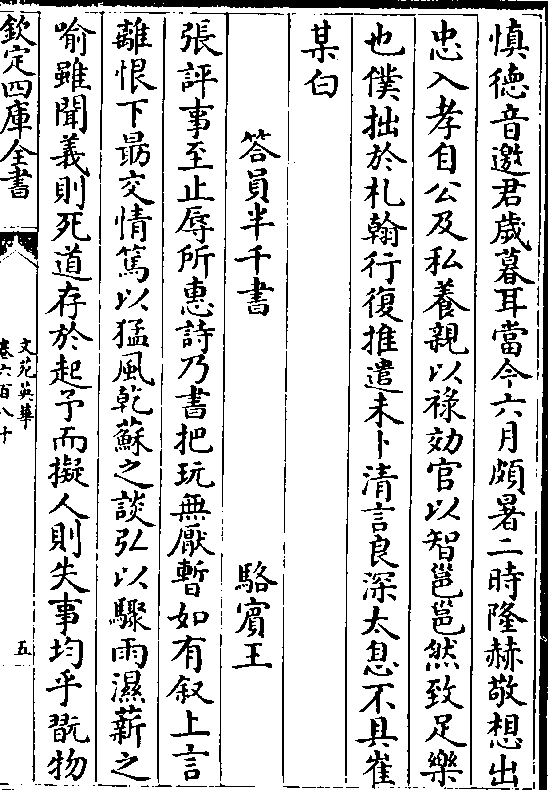 慎德音邀君歲暮耳當今六月頗暑二時隆赫敬想出
忠入孝自公及私養親以祿効官以智邕邕然致足樂
也僕拙於札翰行復推遣未卜清言良深太息不具崔
某白
答員半千書 駱賓王
張評事至止辱所惠詩乃書把玩無厭暫如有叙上言
離恨下勗交情篤以猛風乾蘇之談弘以驟雨濕薪之
喻雖聞義則死道存於起予而擬人則失事均乎翫物
欽定四庫全書
文苑英華
卷六百八十
五